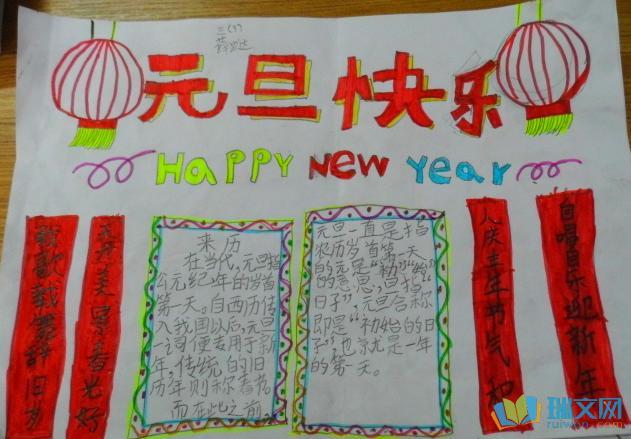 三(7)
元旦快乐
Happy New Year
载歌载舞辞旧岁
来历
在当代,元旦指
公元纪年的岁首
第一天。自西历传
入我国以后,元旦
一词便专用于新
年,传统的旧
历年则称春节。
而在此之前,
元旦一直是指
农历岁首第一天
的元是“初”“始”
的意思,旦指“
日子”,元旦合称
即是“初始的日
子”,也就是一年
的第一天。
人庆丰年节气和
自唱音乐迎新年
瑞文网
ruiwen.com